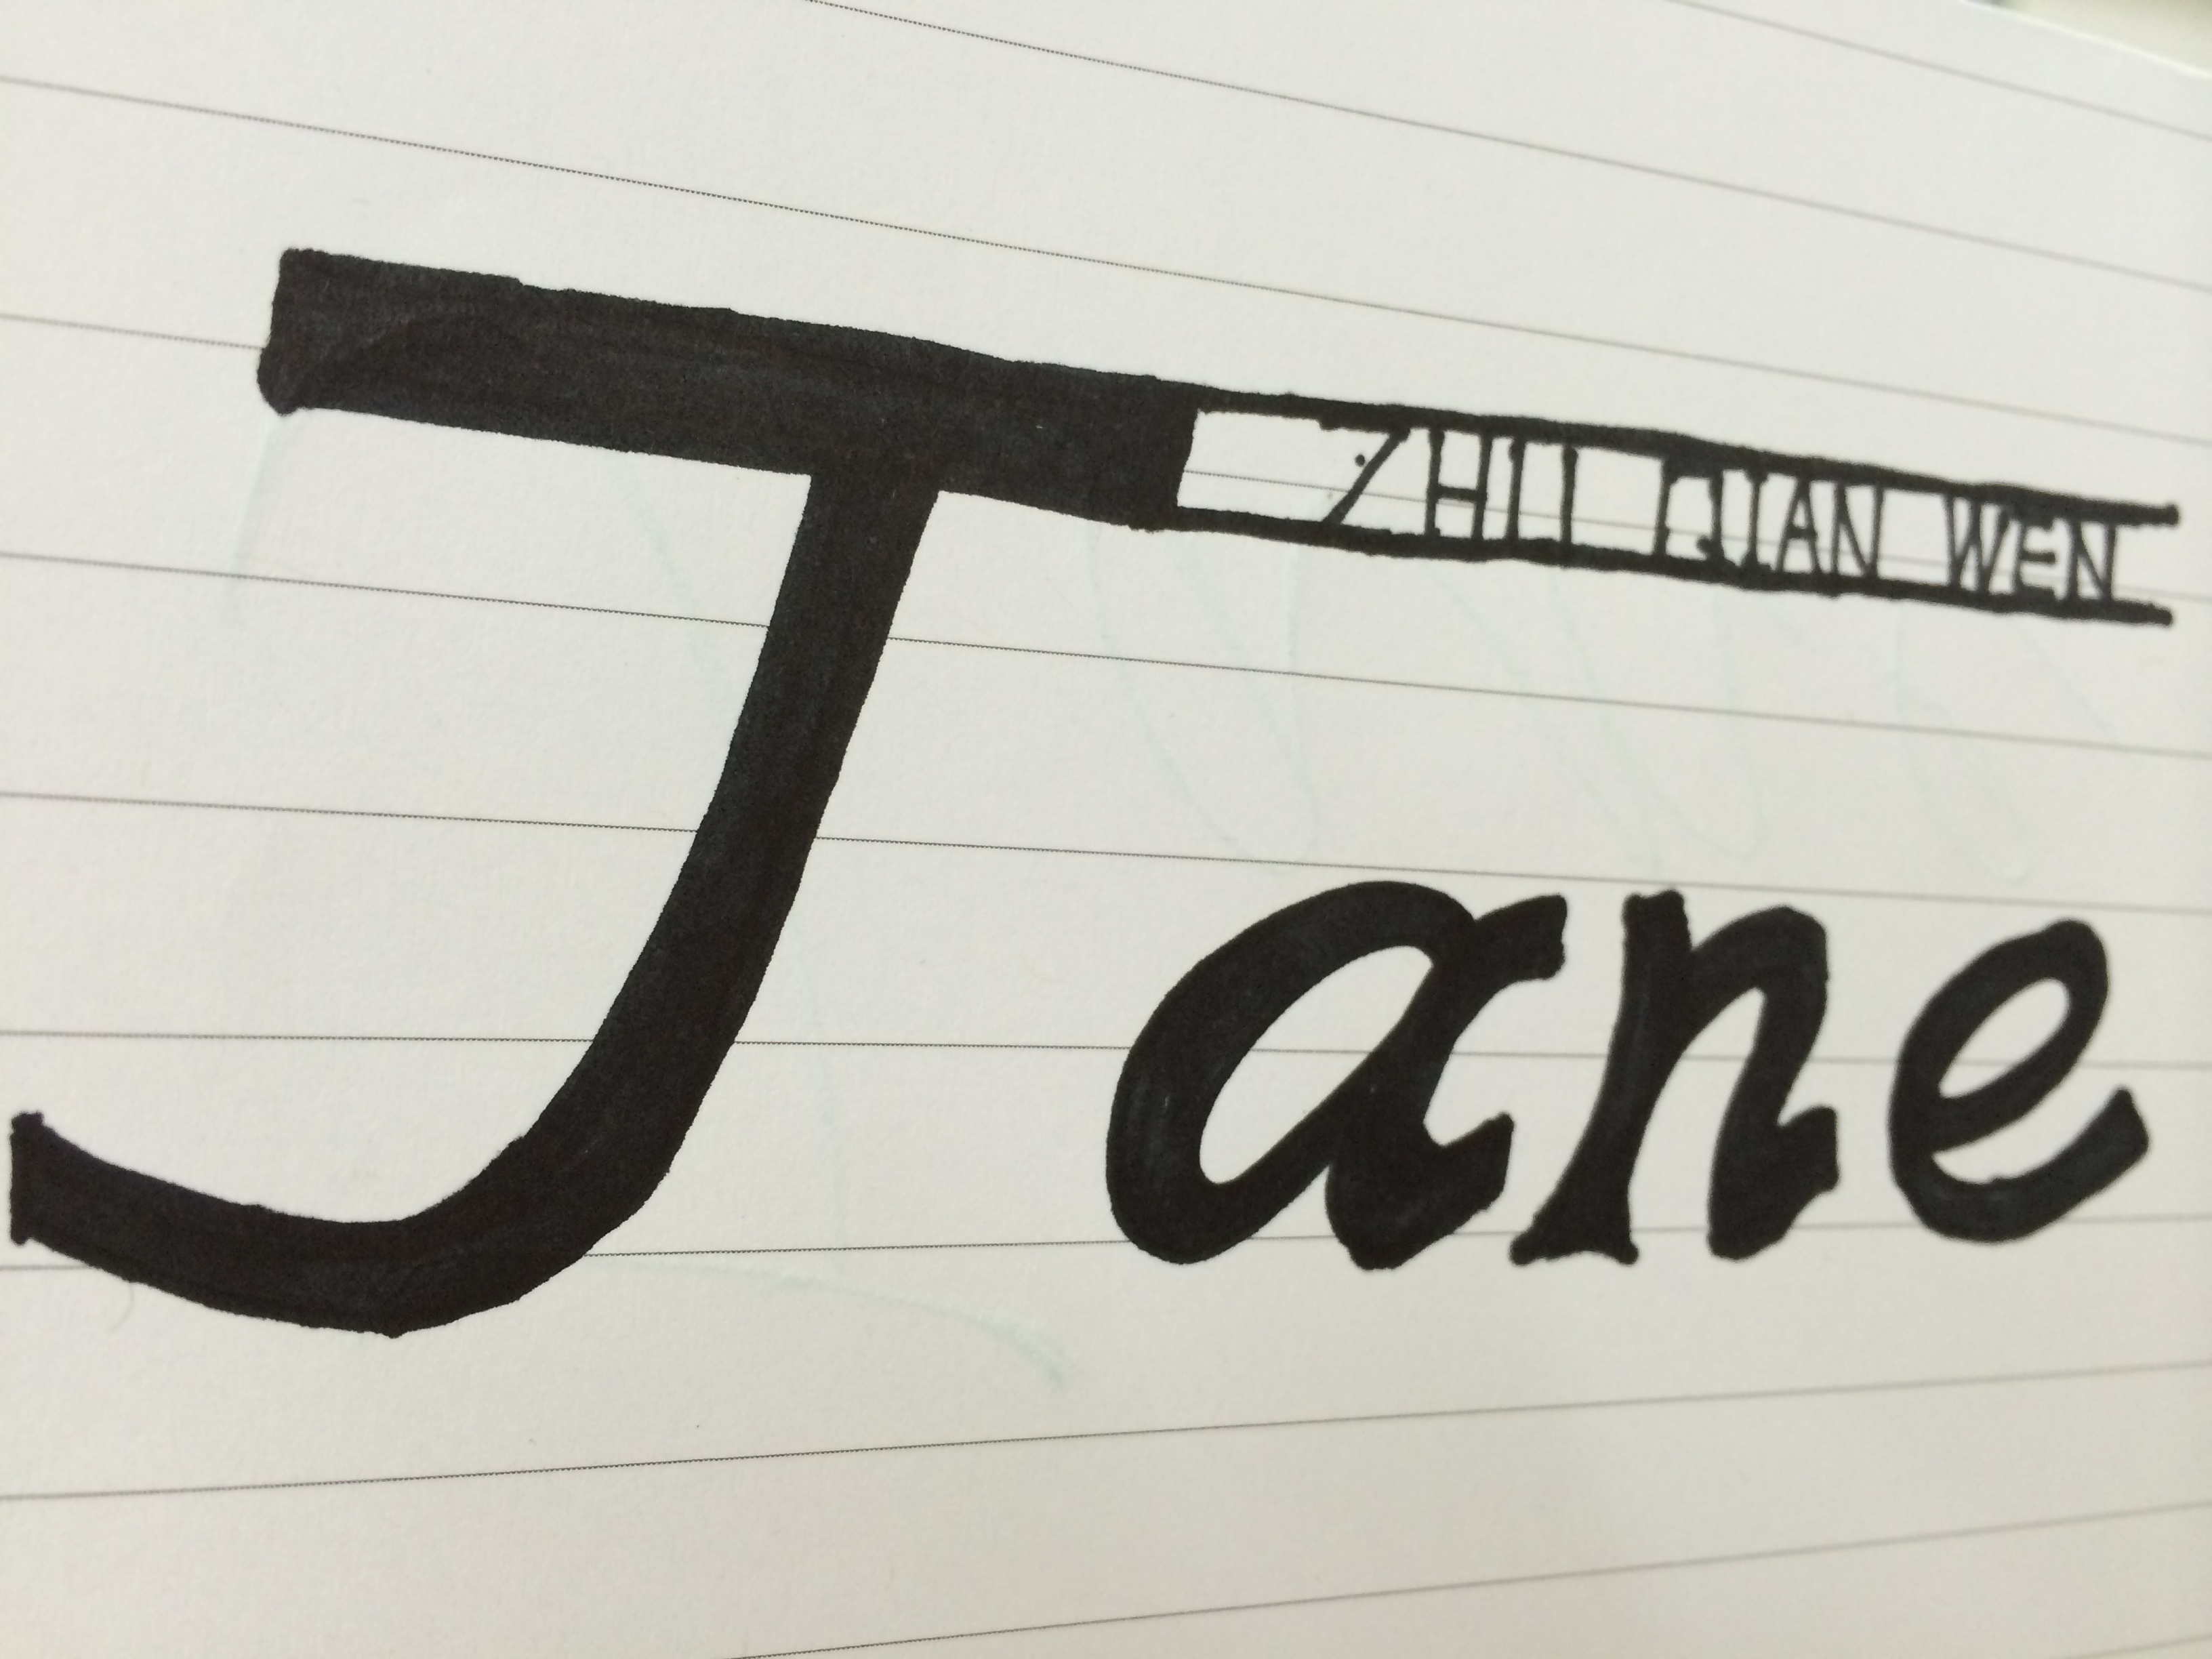 ZHU QIAN WEN
Jane